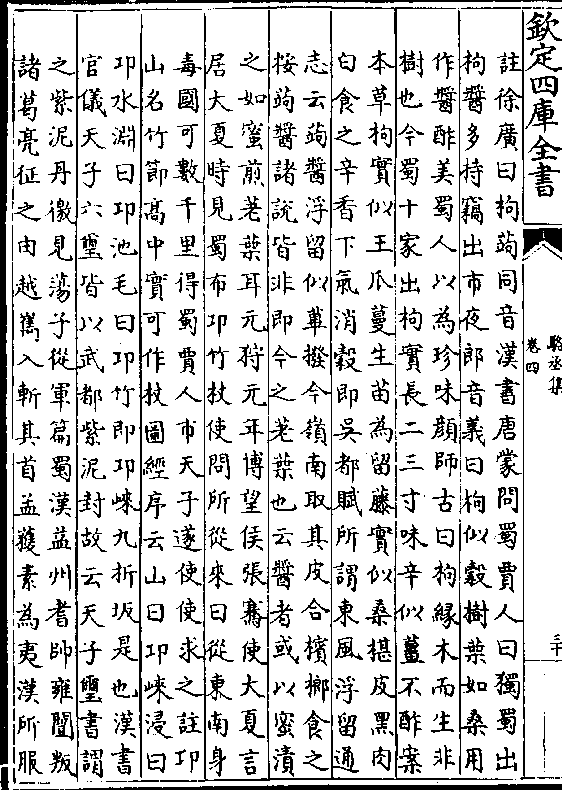 欽定四庫全書
卷四
三十
註徐廣曰拘蒟同音漢書唐蒙問蜀賈人曰獨蜀出
枸醬多持竊出市夜郎音義曰枸似穀樹葉如桑用
作醬酢美蜀人以為珍味顏師古曰枸緣木而生非
樹也今蜀十家出枸實長二三寸味辛似薑不酢案
本草枸實似王瓜蔓生苗為留藤實似桑椹皮黑肉
白食之辛香下氣消穀即吳都賦所謂東風浮留通
志云蒟醬浮留似蓽撥今嶺南取其皮合檳榔食之
按蒟醬諸說皆非即今之荖葉也云醬者或以蜜漬
之如蜜煎荖葉耳元狩元年博望侯張騫使大夏言
居大夏時見蜀布邛竹杖使問所從來曰從東南身
毒國可數千里得蜀賈人市天子遂使使求之註邛
山名竹節高中實可作杖圖經序云山曰邛崍浸曰
邛水淵曰邛池毛曰邛竹即邛崍九折坂是也漢書
官儀天子六璽皆以武都紫泥封故云天子璽書謂
之紫泥丹徼見蕩子從軍篇蜀漢益州耆帥雍闓叛
諸葛亮征之由越嶲入斬其首孟獲素為夷漢所服